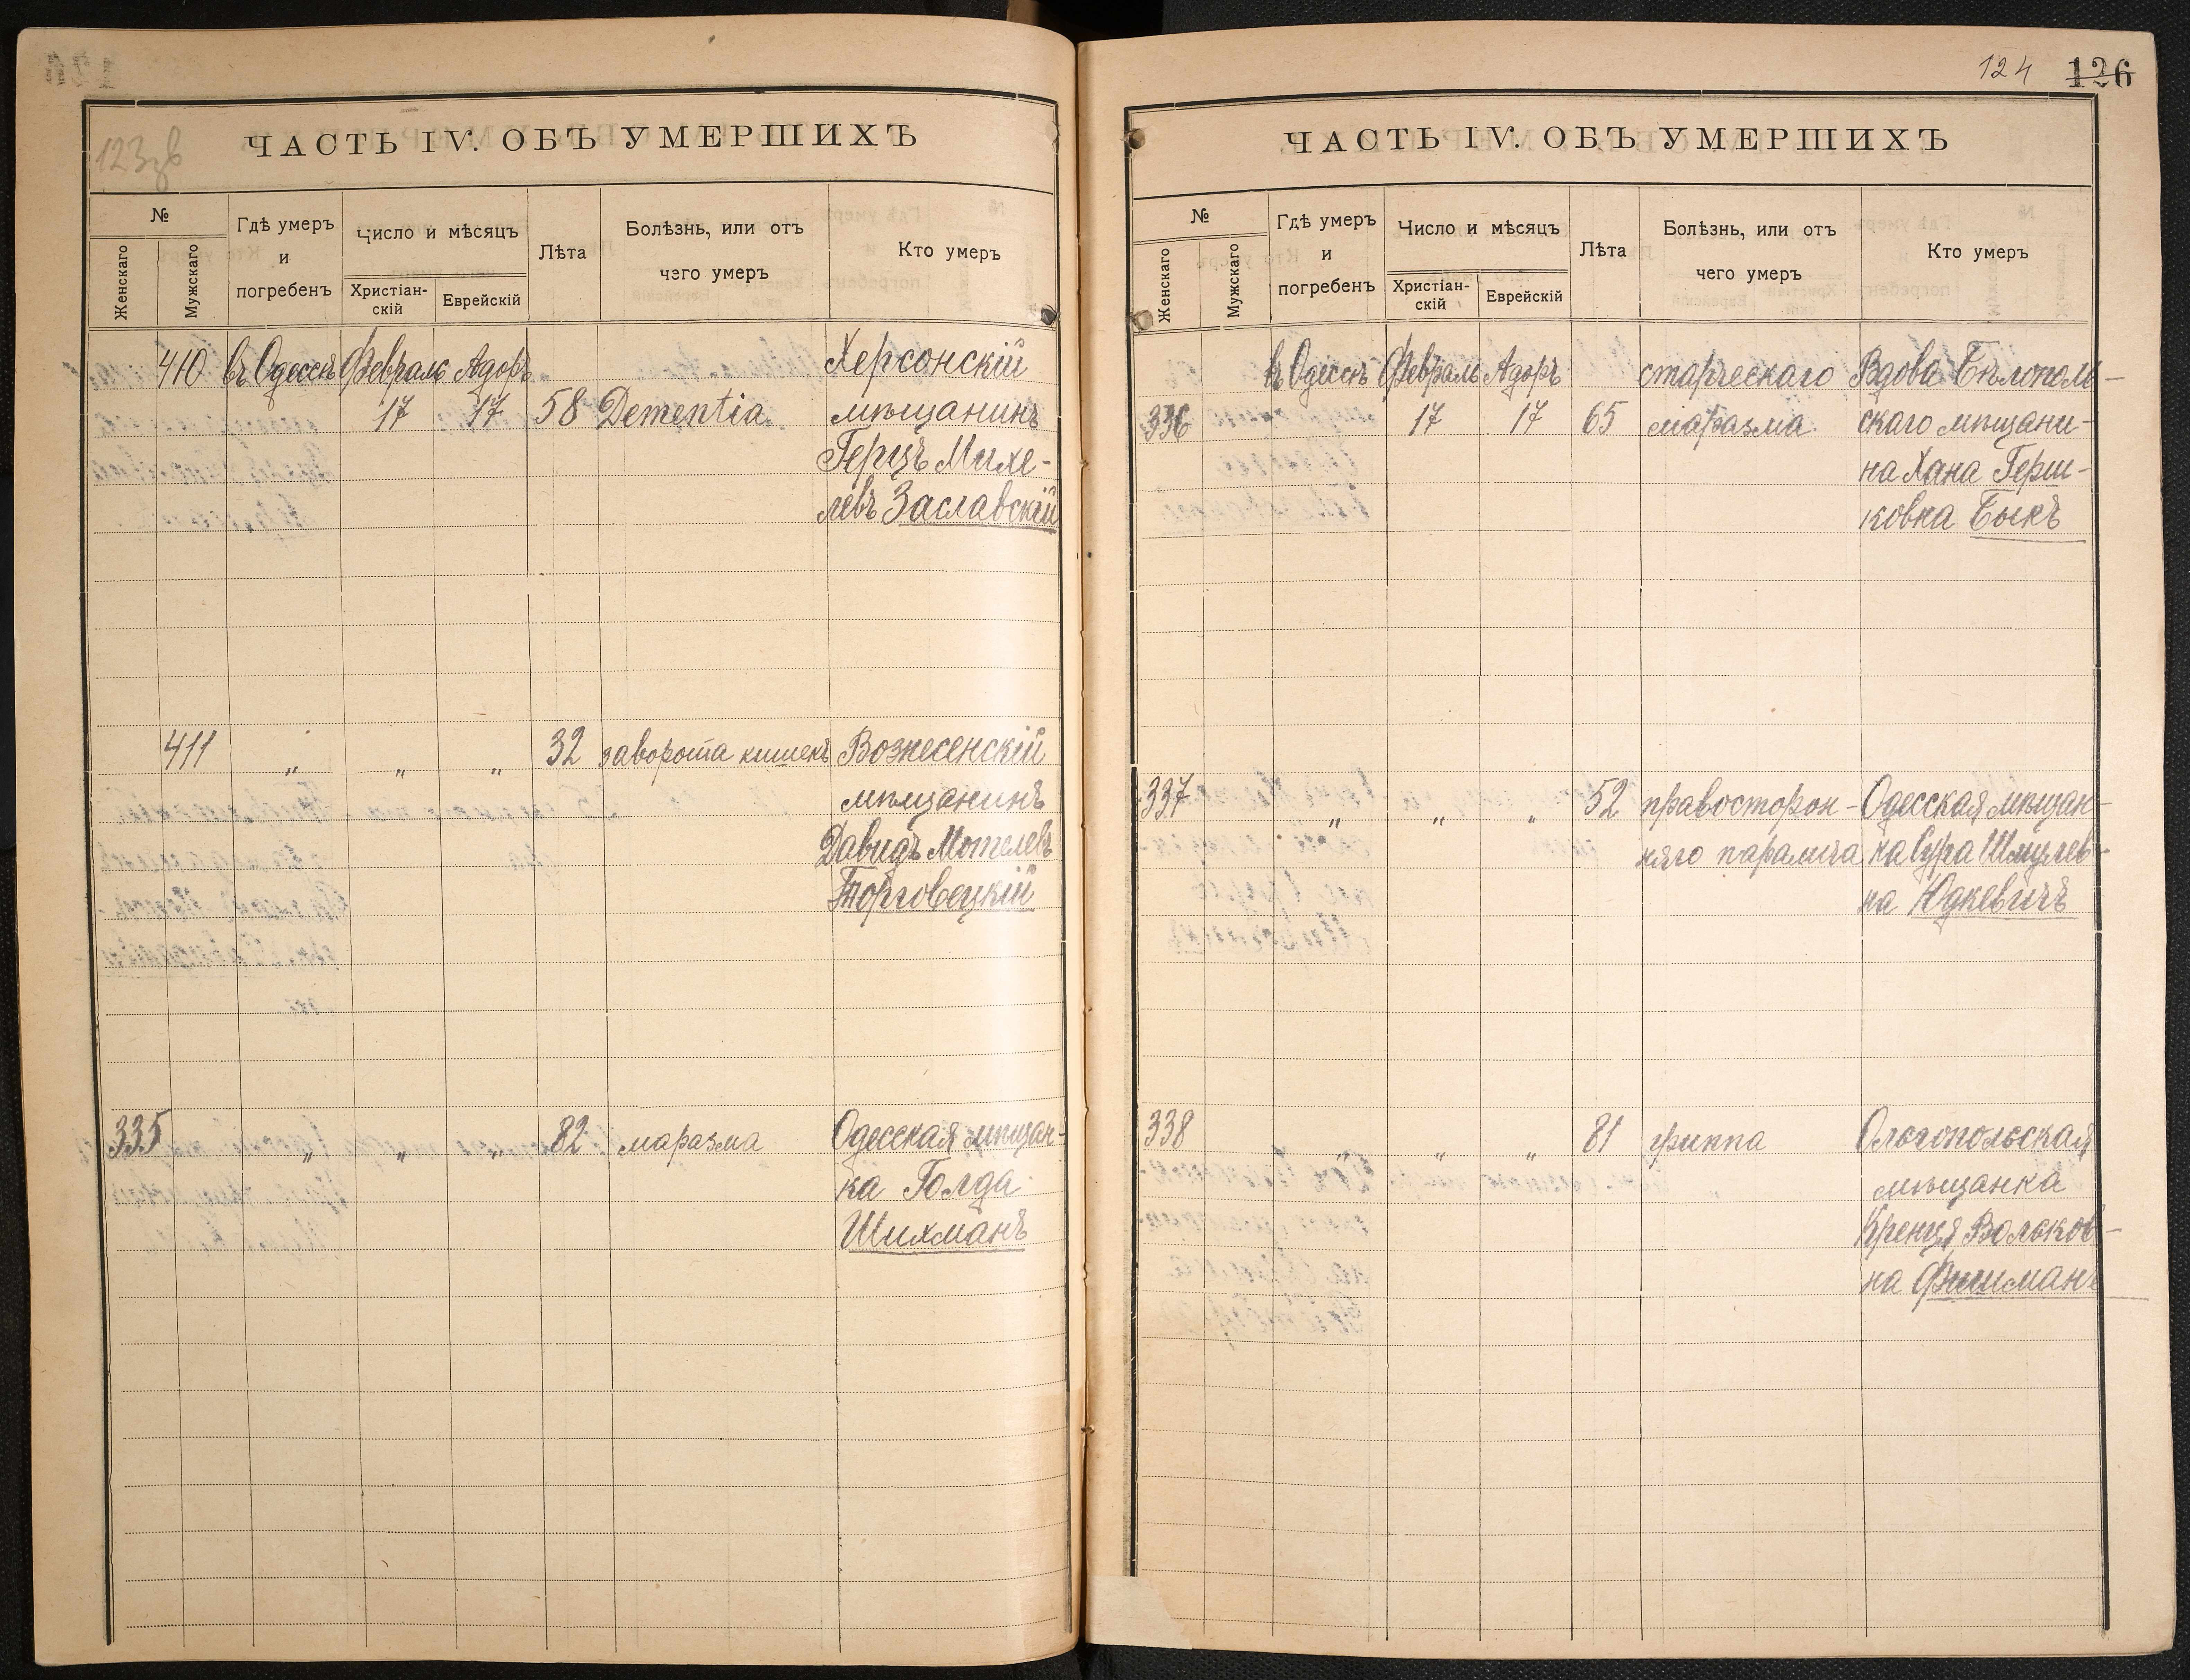 123 об
ЧАСТЬ IV. ОБЪ УМЕРШИХЪ
№
Женскаго
Мужскаго
Гдѣ умеръ
и
погребенъ
Число и мѣсяцъ
Христіан-
скій
Еврейскій
Лѣта
Болѣзнь, или отъ
чего умеръ
Кто умеръ
410 въ Одессѣ Февраль Адоръ Херсонскій
17 17 58 Dementia мѣщанинъ
Герцъ Михе-
левъ Заславскій
411 " " " 32 заворота кишекъ Вознесенскій
мѣщанинъ
Давидъ Мотелевъ
Торговецкій
335 " " " 82 маразма Одесская мѣщан-
ка Голда
Шихманъ
124 126
ЧАСТЬ IV. ОБЪ УМЕРШИХЪ
№
Женскаго
Мужскаго
Гдѣ умеръ
и
погребенъ
Число и мѣсяцъ
Христіан-
скій
Еврейскій
Лѣта
Болѣзнь, или отъ
чего умеръ
Кто умеръ
въ Одессѣ Февраль Адоръ старческаго Вдова Бѣлополь-
336 17 17 65 маразма скаго мѣщани-
на Хана Герш-
ковна Быкъ
337 " " " 52 правосторон- Одесская мѣщан-
няго паралича ка Сура Шмулев-
на Юдкевичъ
338 " " " 81 гриппа Ольгопольская
мѣщанка
Кренця Вольков-
на Фишманъ